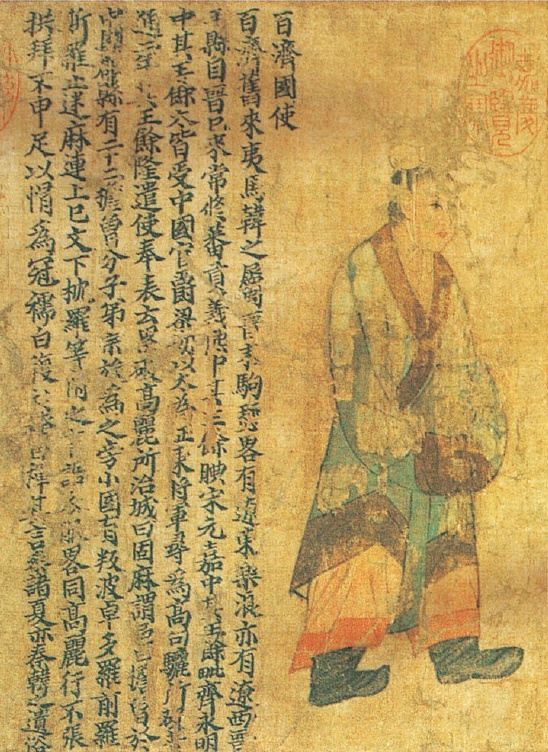 百濟國使
百濟舊來夷馬韓之屬晉末駒驪畧有遼東樂浪亦有遼西晉
平縣自晉已來常修蕃貢義熙中其王餘腆宋元嘉中其王餘毗齊永明
中其王餘太皆受中國官爵梁初以太為征東將軍尋為高句驪所
通二年其王餘隆遣使奉表云累破高麗所治城曰固麻謂邑曰檐魯於
中國郡縣有二十二檐魯分子弟宗族為之旁小國有叛波卓多羅前羅
斯羅止迷麻連上巳文下枕羅等附之言語衣服畧同高麗行不張
拱拜不申足以帽為冠襦曰複衫袴曰褌其言參諸夏亦秦韓之遺俗